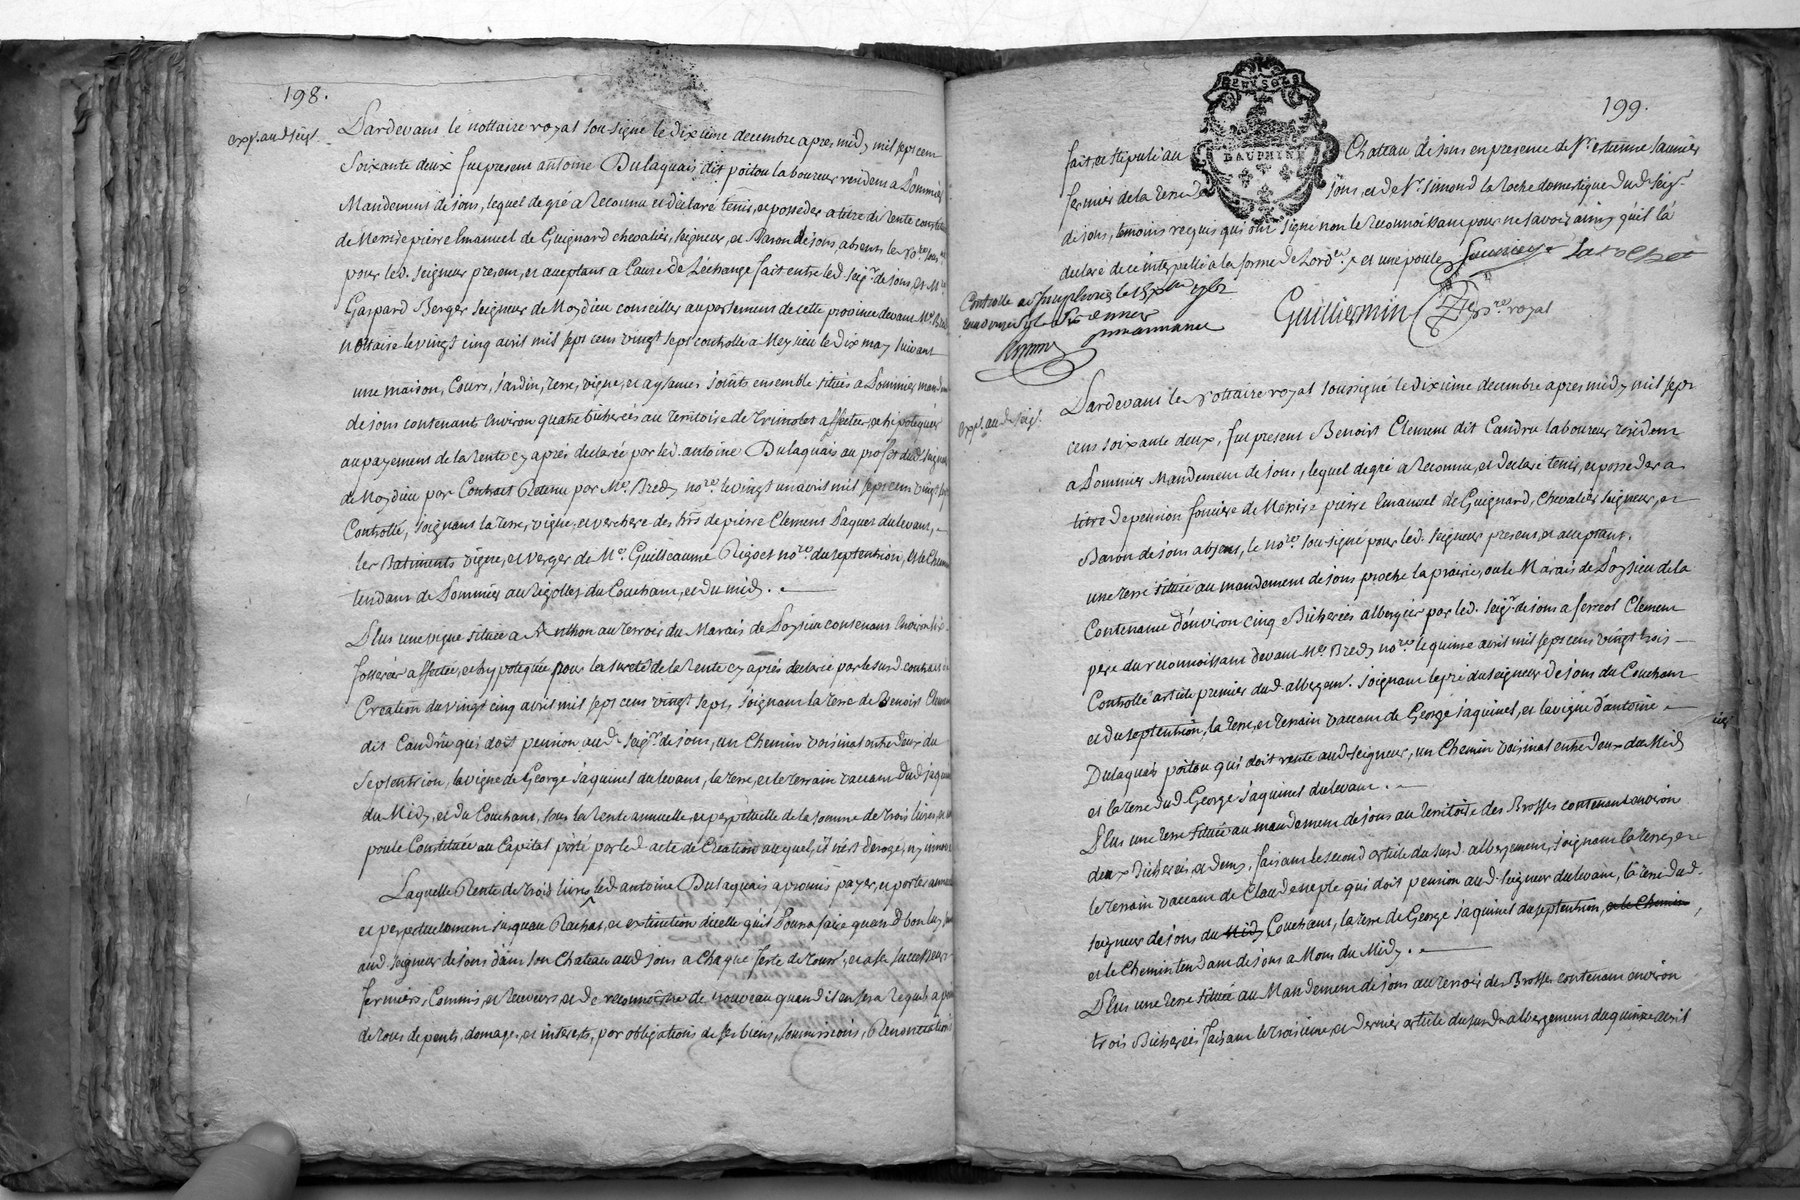 198.
exp. au d. seigr.
Pardevant le nottaire royal sousigné le dixième decembre apres midy mil sept cent
soixante deux fut present antoine Dulaquais dit poitou laboureur resident a Dommier
Mandement de jons, lequel de gré a Reconnu et déclaré tenir, et posseder a titre de Rente constituée
de Messire pierre Emanuel de Guignard chevalier, seigneur, et Baron de jons, absent, le no.re sous.né
pour led. seigneur present, et acceptant a Cause de L'échange fait entre led. seig.r de jons, et M.re
Gaspard Berger seigneur de Moydieu conseiller au parlement de cette province devant M.e Bredy
nottaire le vingt cinq avril mil sept cent vingt sept controllé a Meysieu le dix may suivant
une maison, Cours, jardin, terre, vigne, et aysances joints ensemble situés a Dommier mandement
de jons contenant environ quatre bicherées au territoire de affectée, et hipotequée
au payement de la rente cy après declarée par led. antoine Dulaquais au profit dud. seigneur
de Moydieu par Contract Retenu par M.e Bredy no.re le vingt un avril mil sept cent vingt sept
Controllé, joignant la terre, vigne, et verchere des hrs de pierre Clement Paquet du levant,
les Batiments vigne, et verger de M.e Guilleaume Rigoet no.re du septentrion, et le Chemin
tendant de Dommier au Rigollet du Couchant, et du midy.
Plus une vigne située a Anthon au terroir du Marais de Loysieu contenant environ six
fosserées affectée, et hypotequée pour la sureté de la rente cy après declarée par le susd. contract
Creation du vingt cinq avril mil sept cent vingt sept, joignant la terre de Benoist Clement
dit Candru qui doit pension aud. seig.r de jons, un Chemin voisinal entre deux du
septentrion, la vigne de George jaquinet du levant, la terre, et le terrain vaccant dud. jaquinet
du Midy, et du Couchant, sous la rente annuelle, et perpetuelle de la somme de trois livres, et une
poule Constituée au Capital porté par led. acte de Création auquel, il n'est derogé, ny innové
Laquelle Rente de trois livres led. antoine Dulaquais a promis payer, et porter annuellement
et perpetuelement jusqu'au Rachat, et extinction d'icelle qu'il pourra faire quand bon luy
aud. seigneur de jons dans son Chateau aud. jons a Chaque feste de touss.t, et a ses successeurs
fermiers, Commis, et Receveurs, et de reconnoître de nouveau quand il en sera Requis a peine
de tous depents, domages, et interets, par obligations de ses biens, soumissions, Renontiations
199.
DAUPHINÉ
fait et stipulé au Chateau de jons en presence de S.r estienne saunier
fermier de la terre de jons, et de S.r simond la Roche domestique dud. seig.r
de jons, temoins requis qui ont signé non le reconnoissant pour ne savoir ainsy qu'il l'a
declaré de ce interpellé a la forme de l'ord.ce et une poule
Guilliermin no.re royal
exp. au d. seigr.
Pardevant le nottaire royal soussigné le dixième decembre apres midy mil sept
cent soixante deux, fut present Benoist Clement dit Candru laboureur resident
a Dommier Mandement de jons, lequel de gré a Reconnu, et declaré tenir, et posseder a
titre de pension foncière de Messire pierre Emanuel de Guignard, chevalier, seigneur, et
Baron de jons absent, le no.re sousigné pour led. seigneur present, et acceptant.
une terre située au mandement de jons proche la prairie, ou le Marais de Loysieu de la
Contenance d'environ cinq Bicherées albergées par led. seig.r de jons a ferreol Clement
père du reconnoissant devant M.e Bredy no.re le quinze avril mil sept cent vingt trois
Controllé article premier dud. albergem.t joignant le pré du seigneur de jons du Couchant
et du septentrion, la terre, et terrain vaccant de George jaquinet, et la vigne d'antoine
Dulaquais poitou qui doit rente aud. seigneur, un Chemin voisinal entre deux du Midy
et la terre dud. George jaquinet du levant.
Plus une terre située au mandement de jons au territoire des Brosses contenant environ
deux Bicherées et demy, faisant le second article du susd. albergement, joignant la terre, et
le terrain vaccant de Claude neple qui doit pension aud. seigneur du levant, la terre dud.
seigneur de jons du midy Couchant, la terre de George jaquinet du septentrion, et le Chemin
et le Chemin tendant de jons a Mons du Midy.
Plus une terre située au Mandement de jons au terroir des Brosses contenant environ
trois Bicherées faisant le troisième, et dernier article du susd. albergement du quinze avril